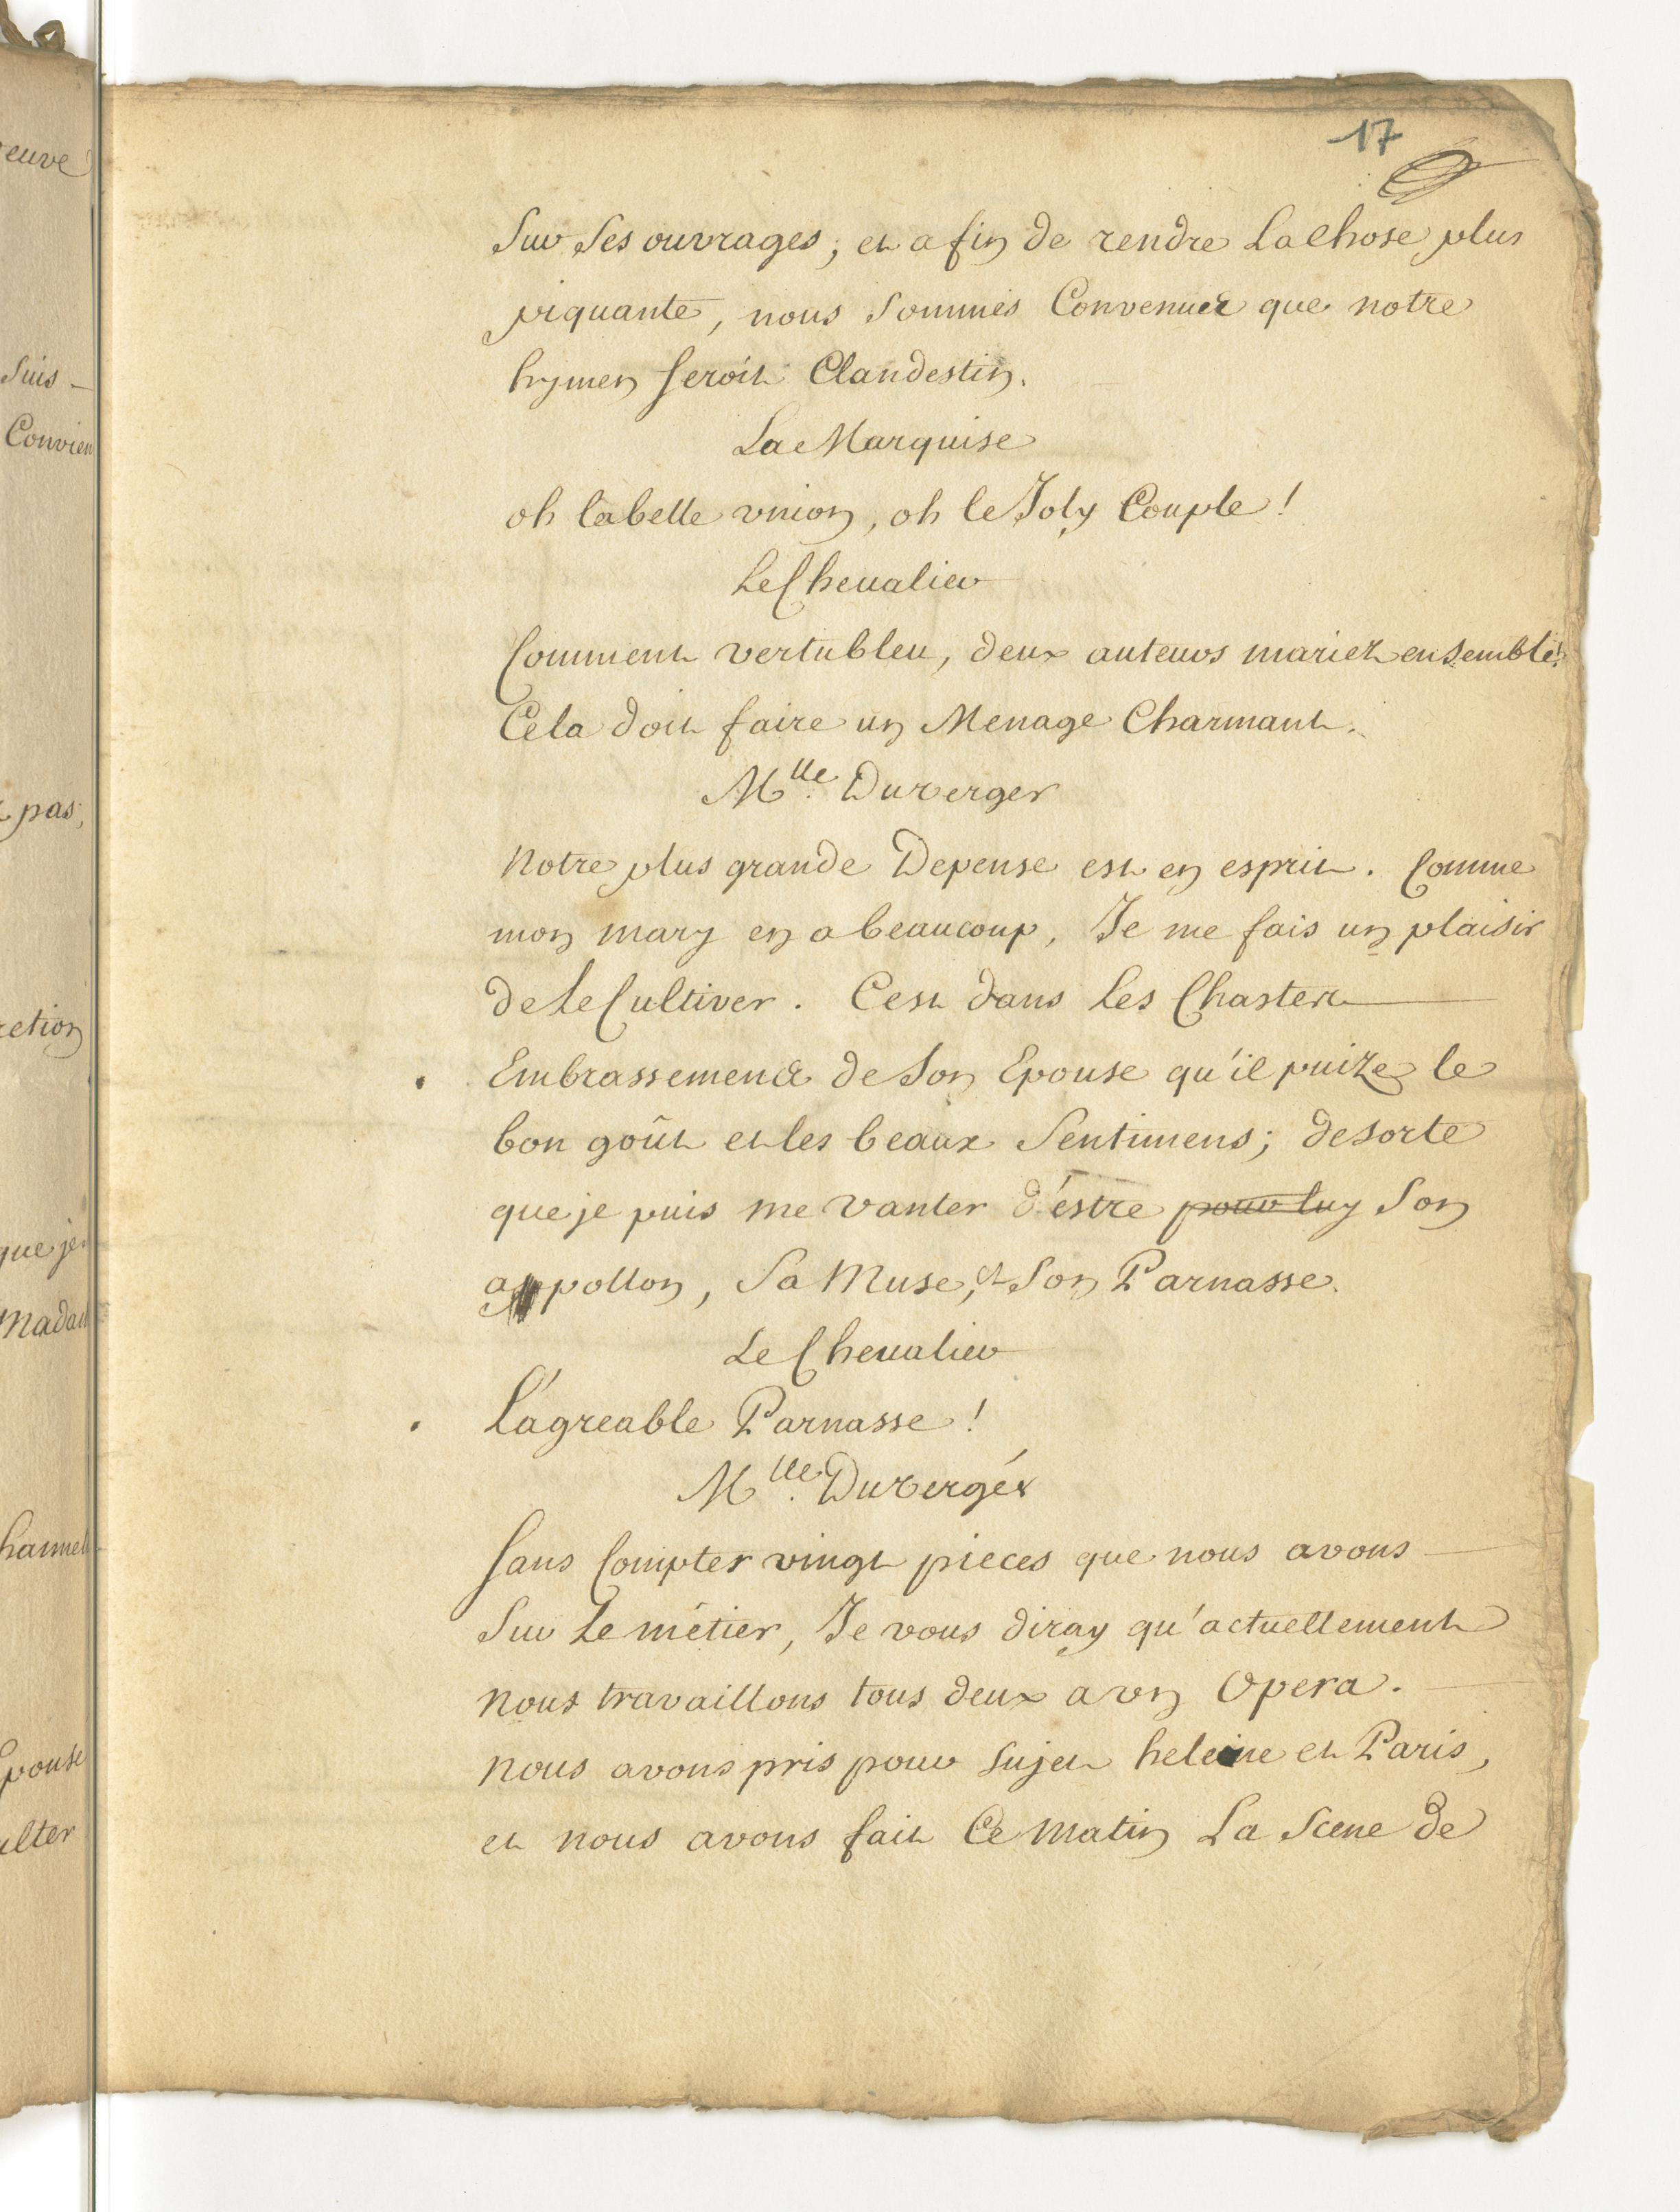 17
Sur Ses ouvrages; et afin de rendre La Chose plus
piquante, nous Sommes Convenuez que notre
hymen Seroit Clandestin.
La Marquise
oh la belle vnion, oh le Joly Couple!
Le Chevalier
Comment vertubleu, deux auteurs mariez ensemble!
Cela doit faire un Menage Charmant.
Mlle. Duverger
Notre plus grande Depense est en esprit. Comme
mon mary en a beaucoup, Je me fais un plaisir
de Le Cultiver. Cest dans Les Chastes
Embrassements de Son Epouse qu'il puize le
bon goût et les beaux Sentimens; desorte
que je puis me vanter d'estre pour luy Son
appollon, Sa Muse, et Son Parnasse.
Le Chevalier
L'agreable Parnasse!
Mlle. Duverger
Sans Compter vingt pieces que nous avons
Sur Le métier, Je vous diray qu'actuellement
nous travaillons tous deux a vn Opera.
nous avons pris pour Sujet heleine et Paris,
et nous avons fait Ce matin La Scene de
euve
Suis
Convien
pas;
retion
que je
Madam
pouse
ulter